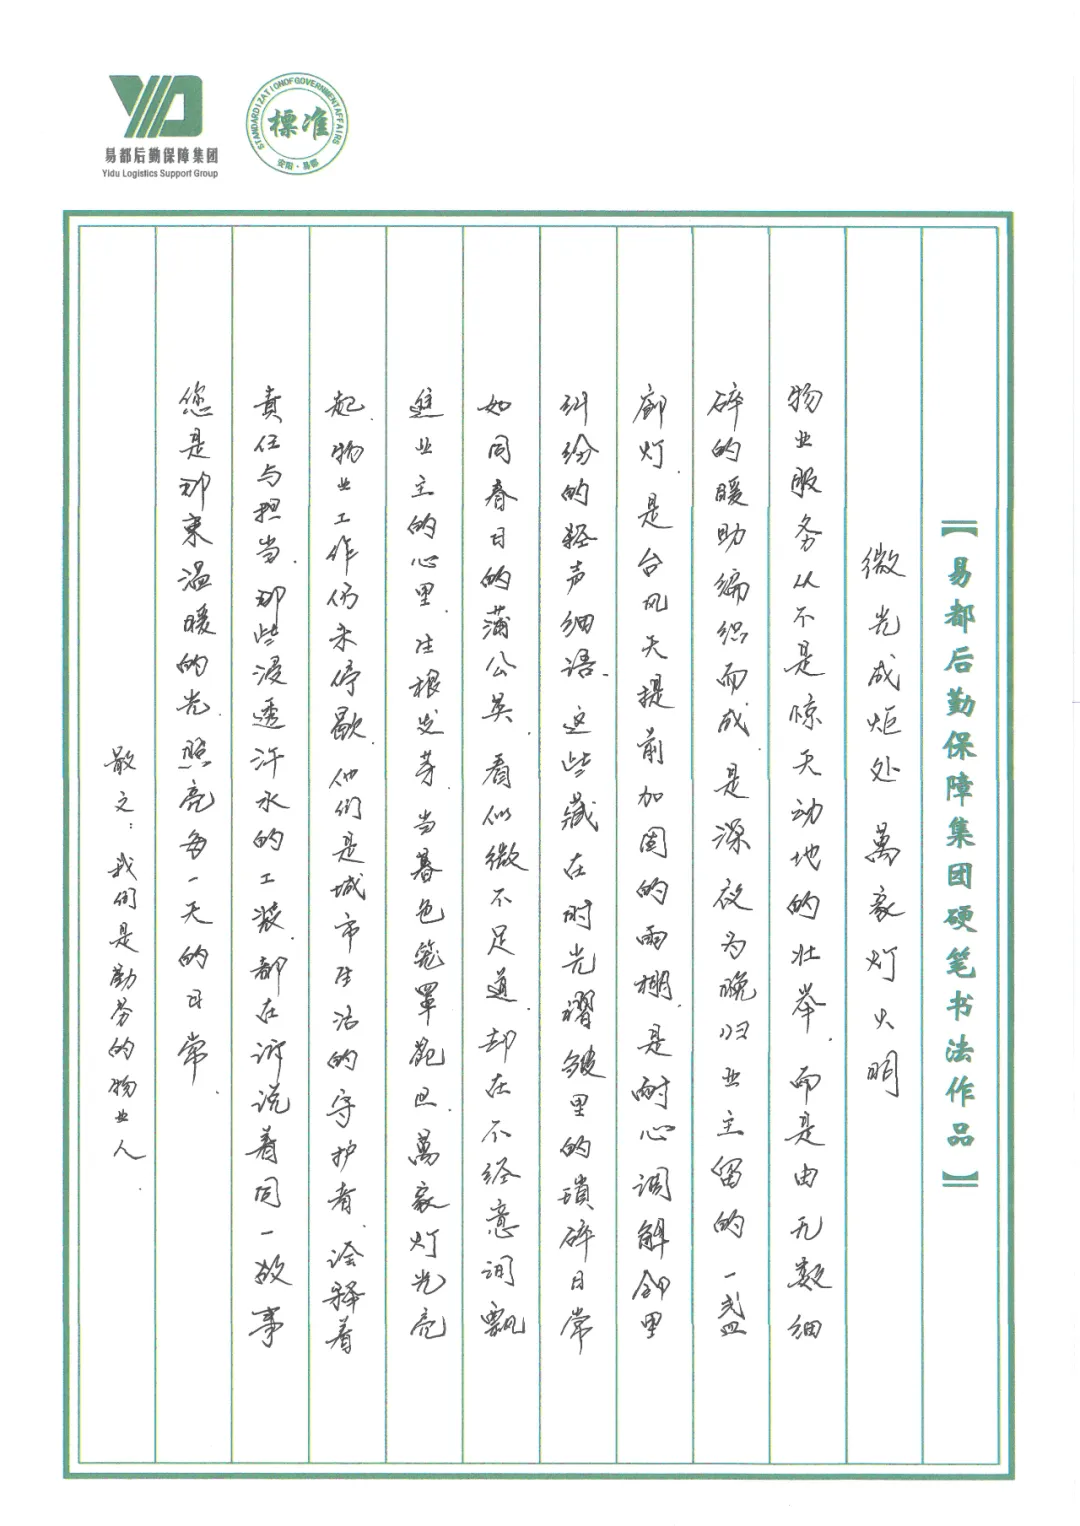 易都后勤保障集团
Yidu Logistics Support Group
STANDARDIZATION OF GOVERNMENT AFFAIRS
標准
安阳·易都
【易都后勤保障集团硬笔书法作品】
微光成炬处 萬家灯火明
物业服务从不是惊天动地的壮举.而是由无数细
碎的暖助编织而成.是深夜为晚归业主留的一盏
廊灯.是台风天提前加固的雨棚.是耐心调解邻里
纠纷的轻声细语.这些藏在时光褶皱里的琐碎日常
如同春日的蒲公英.看似微不足道.却在不经意间飘
进业主的心里.生根发芽.当暮色笼罩.萬家灯光亮
起.物业工作仍未停歇.他们是城市生活的守护者.诠释着
责任与担当.那些浸透汗水的工装.都在诉说着同一故事
您是那束温暖的光.照亮每一天的日常.
散文:我们是勤劳的物业人.